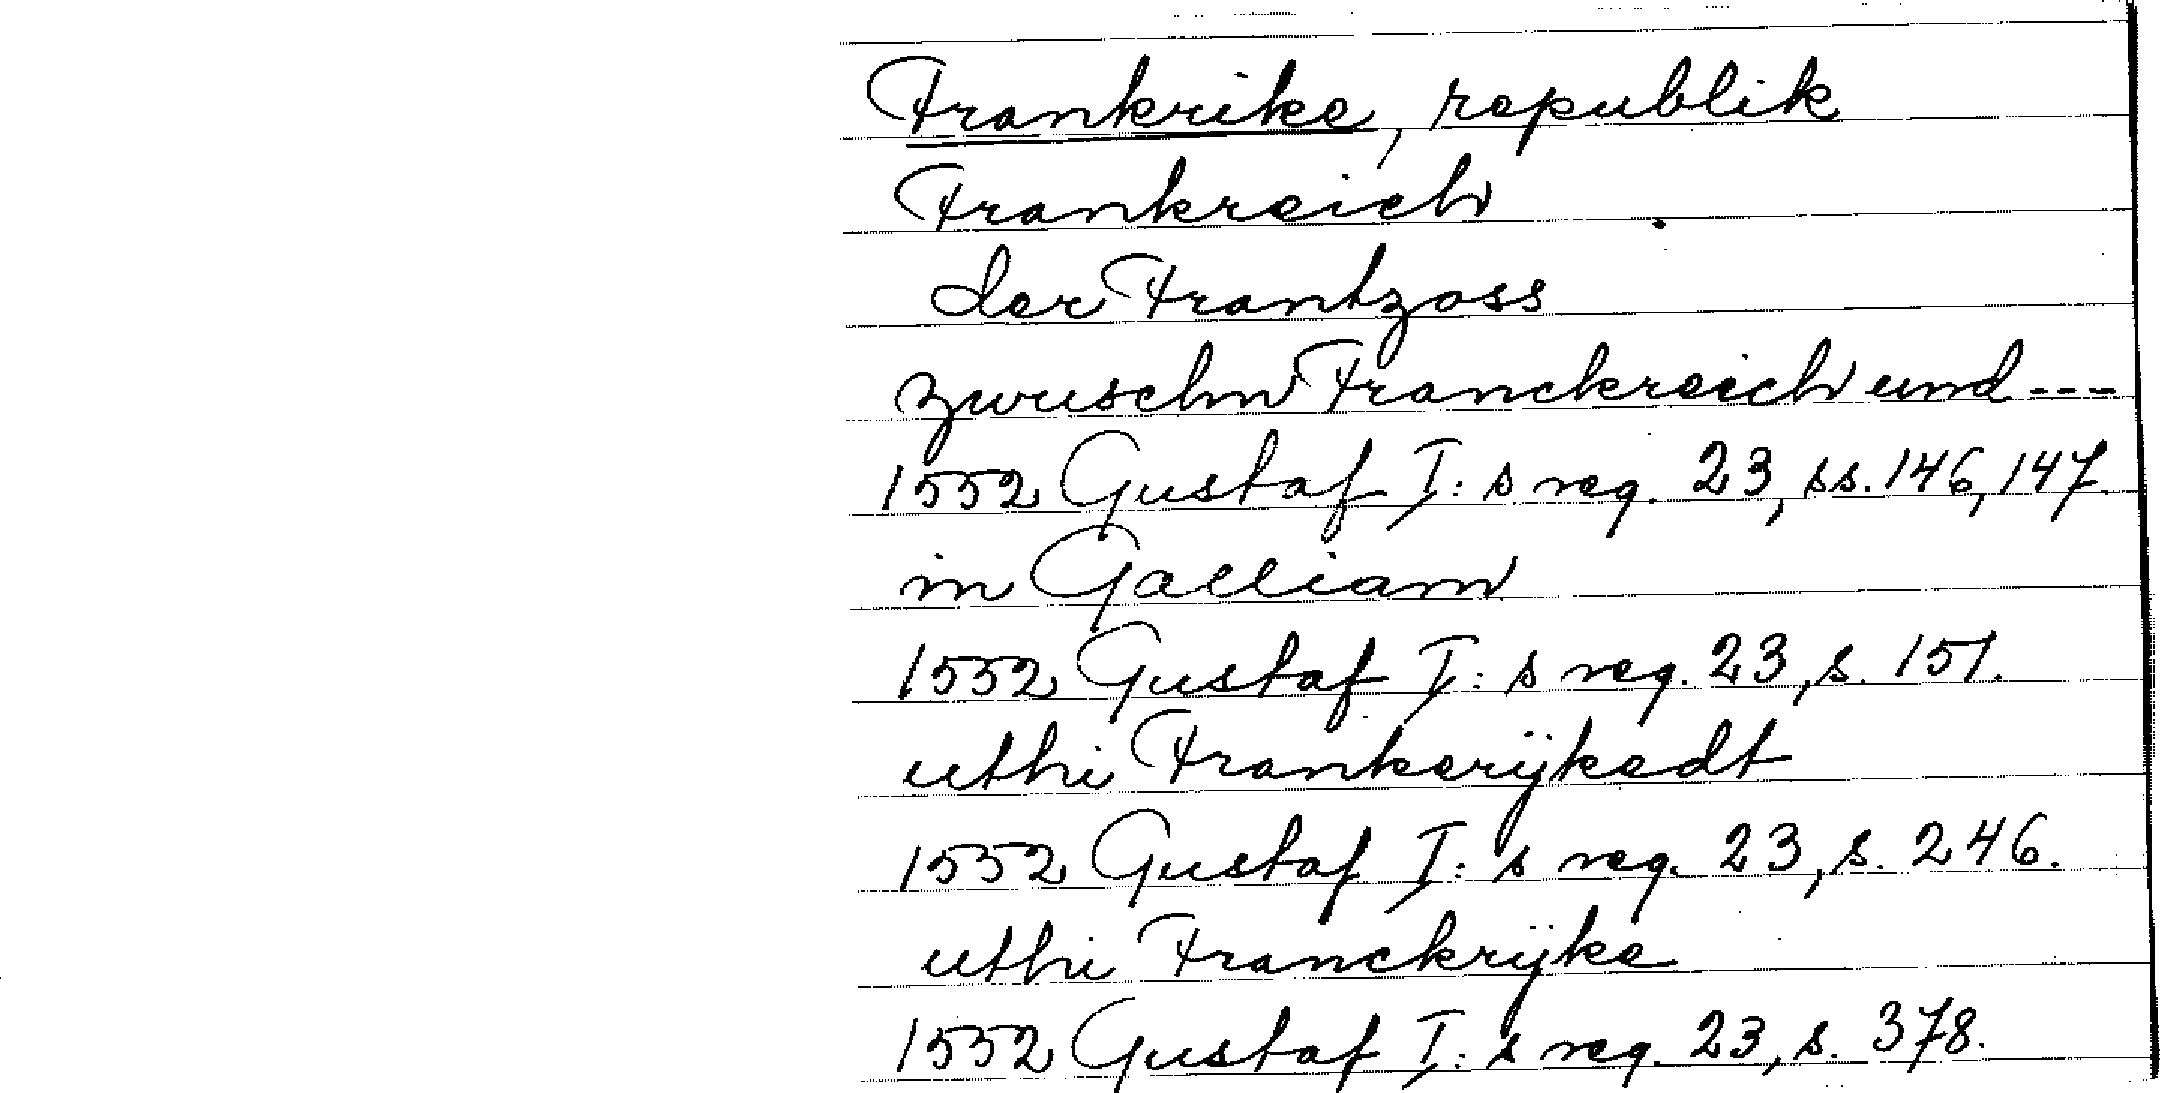 Frankrike, republik
Frankreich
der Frantzoss
zwuschn Franckreich und ---
1552 Gustaf I:s reg. 23, ss. 146, 147.
in Galliam
1552 Gustaf I:s reg. 23, s. 151.
uthi Frankerÿkedt
1552 Gustaf I:s reg. 23, s. 246.
uthi Franckrÿke
1552 Gustaf I:s reg. 23, s. 378.